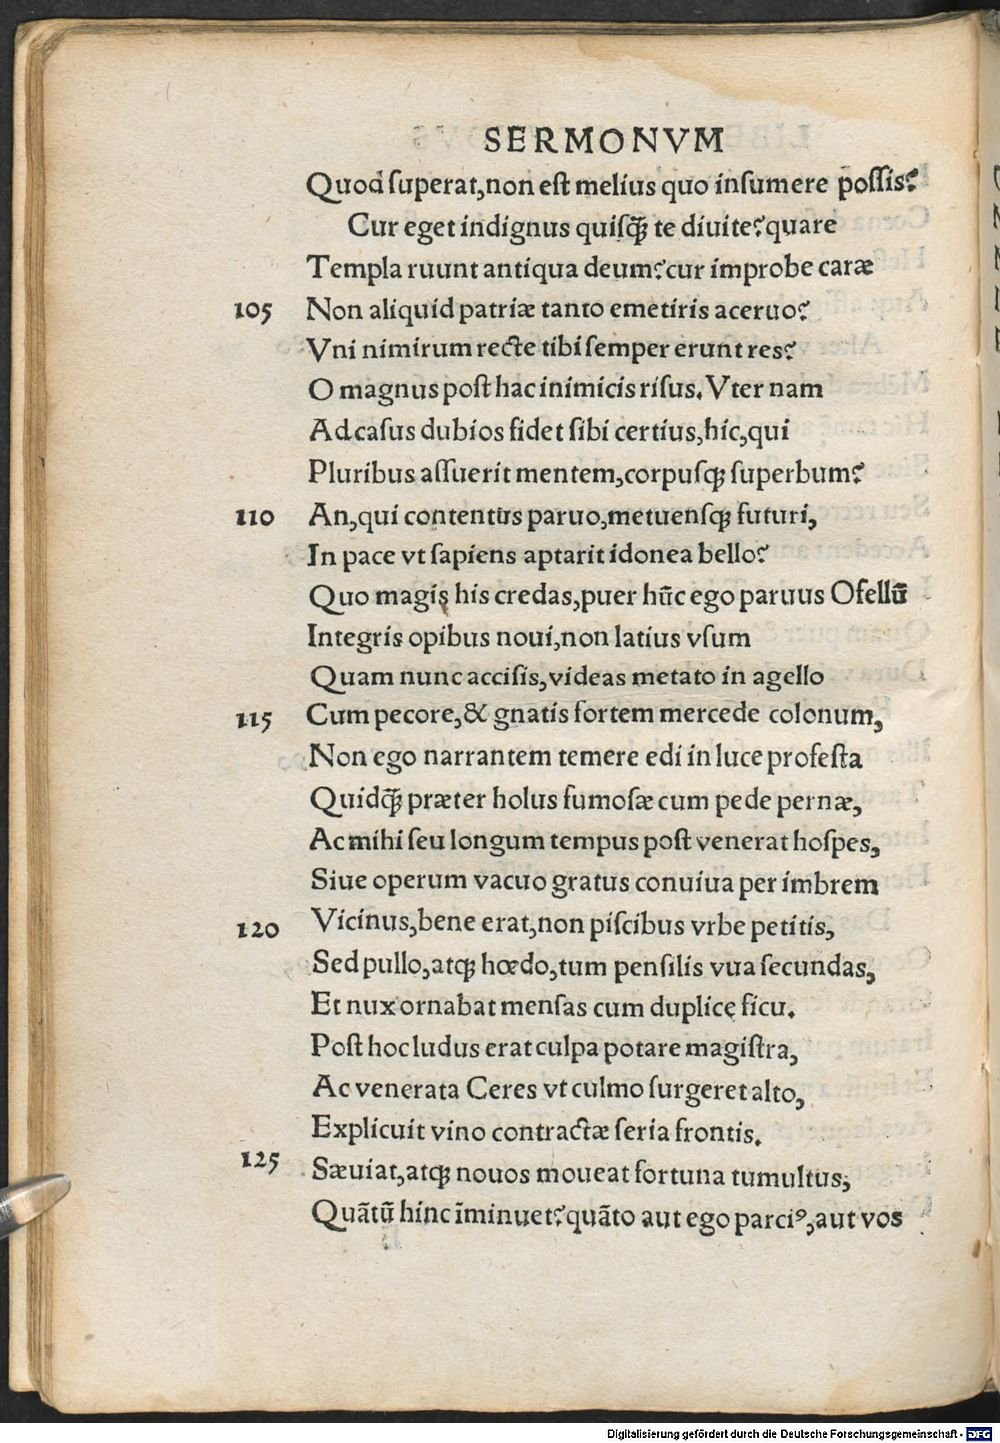 SERMONVM
Quod ſuperat,non eſt melius quo inſumere poſſis?
Cur eget indignus quiſq̃ te diuite?quare
Templa ruunt antiqua deum?cur improbe caræ
105 Non aliquid patriæ tanto emetiris aceruo?
Vni nimirum recte tibi ſemper erunt res?
O magnus poſt hac inimicis riſus. Vter nam
Ad caſus dubios fidet ſibi certius,hic,qui
Pluribus aſſuerit mentem,corpuſq; ſuperbum?
110 An,qui contentus paruo,metuenſq; futuri,
In pace vt ſapiens aptarit idonea bello?
Quo magis his credas,puer hũc ego paruus Ofellũ
Integris opibus noui,non latius vſum
Quam nunc acciſis,videas metato in agello
115 Cum pecore,& gnatis fortem mercede colonum,
Non ego narrantem temere edi in luce profeſta
Quidq̃ præter holus fumoſæ cum pede pernæ,
Ac mihi ſeu longum tempus poſt venerat hoſpes,
Siue operum vacuo gratus conuiua per imbrem
120 Vicinus,bene erat,non piſcibus vrbe petitis,
Sed pullo,atq; hœdo,tum penſilis vua ſecundas,
Et nux ornabat menſas cum duplice ficu.
Poſt hoc ludus erat culpa potare magiſtra,
Ac venerata Ceres vt culmo ſurgeret alto,
Explicuit vino contractæ ſeria frontis.
125 Sæuiat,atq; nouos moueat fortuna tumultus,
Quãtũ hinc ĩminuet?quãto aut ego parciꝰ,aut vos
Digitalisierung gefördert durch die Deutsche Forschungsgemeinschaft - DFG